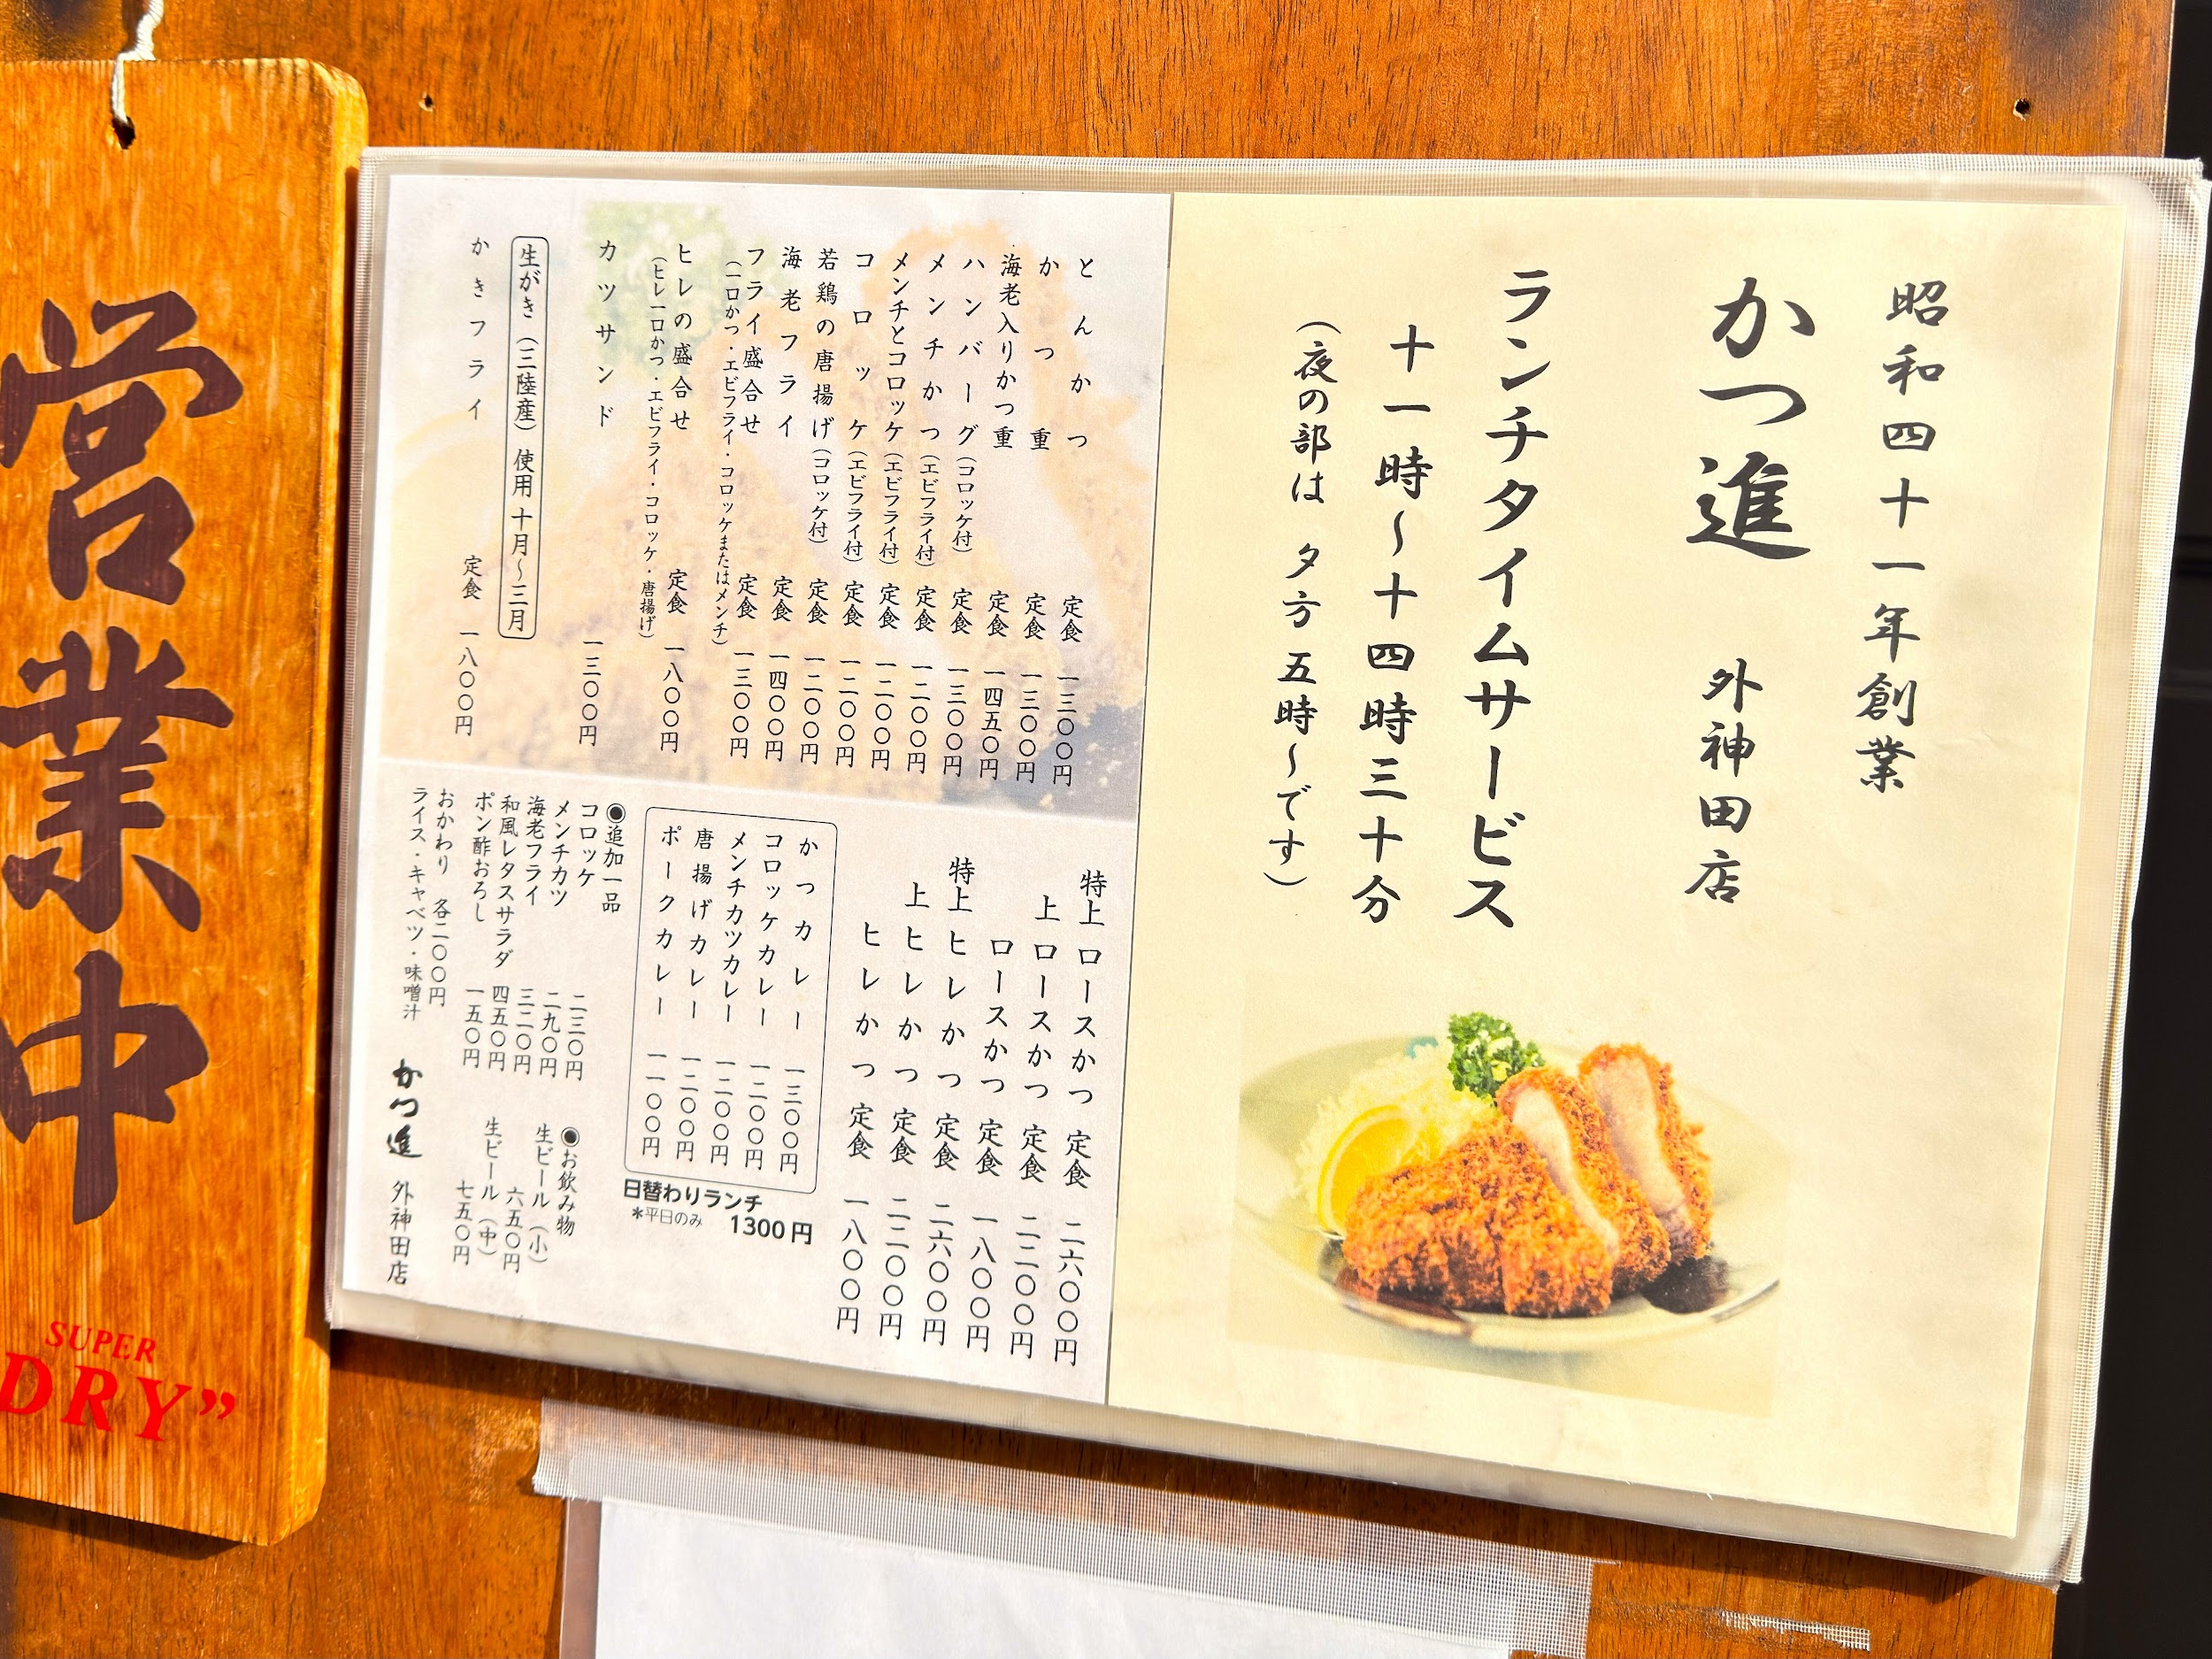 昭和四十一年創業
かつ進 外神田店
ランチタイムサービス
十一時～十四時三十分
(夜の部は 夕方 五時～です)
とんかつ 定食 一三〇〇円
かつ重 定食 一三〇〇円
海老入りかつ重 定食 一四五〇円
ハンバーグ(コロッケ付) 定食 一三〇〇円
メンチかつ(エビフライ付) 定食 一二〇〇円
メンチとコロッケ(エビフライ付) 定食 一二〇〇円
コロッケ(エビフライ付) 定食 一二〇〇円
若鶏の唐揚げ(コロッケ付) 定食 一二〇〇円
海老フライ 定食 一四〇〇円
フライ盛合せ 定食 一三〇〇円
(一口かつ・エビフライ・コロッケまたはメンチ)
ヒレの盛合せ 定食 一八〇〇円
(ヒレ一口かつ・エビフライ・コロッケ・唐揚げ)
カツサンド 一三〇〇円
生がき(三陸産)使用 十月～三月
かきフライ 定食 一八〇〇円
特上ロースかつ 定食 二六〇〇円
上ロースかつ 定食 二二〇〇円
ロースかつ 定食 一八〇〇円
特上ヒレかつ 定食 二六〇〇円
上ヒレかつ 定食 二二〇〇円
ヒレかつ 定食 一八〇〇円
かつカレー 一三〇〇円
コロッケカレー 一二〇〇円
メンチカツカレー 一二〇〇円
唐揚げカレー 一二〇〇円
ポークカレー 一一〇〇円
日替わりランチ
*平日のみ 1300円
◉追加一品
コロッケ 二三〇円
メンチカツ 二九〇円
海老フライ 三二〇円
和風レタスサラダ 四五〇円
ポン酢おろし 一五〇円
おかわり 各二〇〇円
ライス・キャベツ・味噌汁
◉お飲み物
生ビール(小)
六五〇円
生ビール(中)
七五〇円
かつ進 外神田店
営業中
SUPER
DRY”